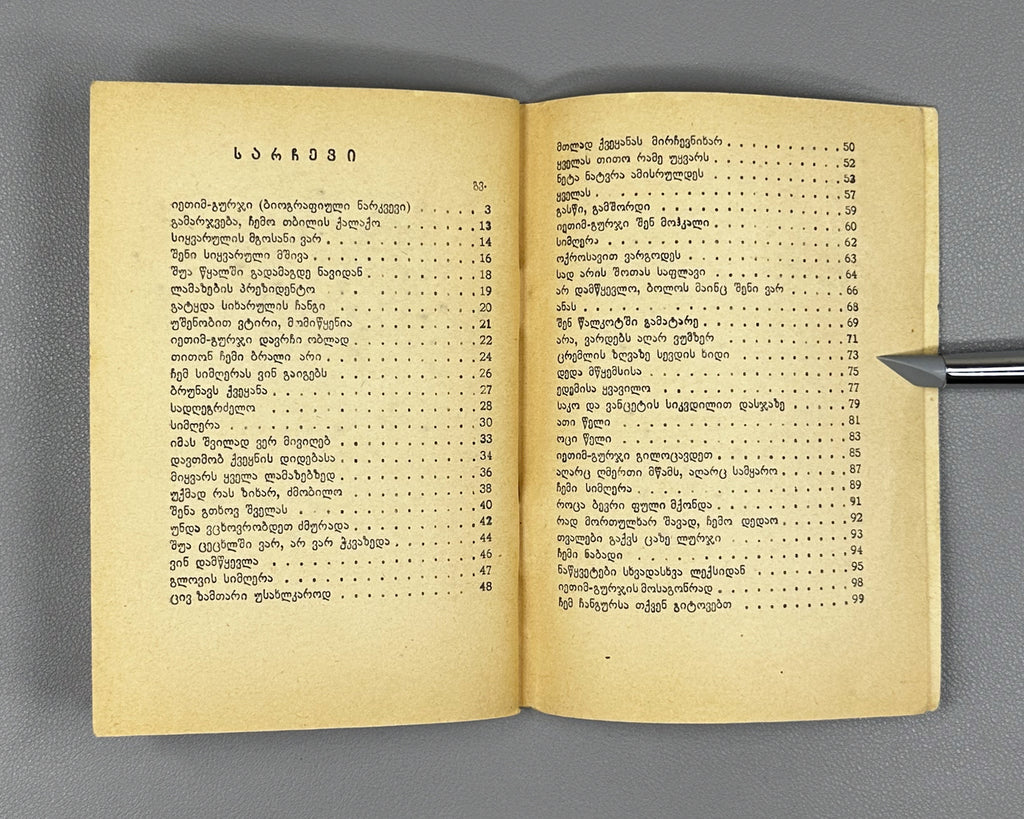 სარჩევი
გვ.
იეთიმ-გურჯი (ბიოგრაფიული ნარკვევი) . . . . . 3
გამარჯვება, ჩემო თბილის ქალაქო . . . . . . 13
სიყვარულის მგოსანი ვარ . . . . . . . . . 14
შენი სიყვარული მშივა . . . . . . . . . . 16
შუა წყალში გადამაგდე ნავიდან . . . . . . . 18
ლამაზების პრეზიდენტო . . . . . . . . . 19
გატყდა სიხარულის ჩანგი . . . . . . . . . 20
უშენობით ვტირი, მომიწყენია . . . . . . . 21
იეთიმ-გურჯი დავრჩი ობლად . . . . . . . . 22
თითონ ჩემი ბრალი არი . . . . . . . . . 24
ჩემ სიმღერას ვინ გაიგებს . . . . . . . . . 26
ბრუნავს ქვეყანა . . . . . . . . . . . . 27
სადღეგრძელო . . . . . . . . . . . . . 28
სიმღერა . . . . . . . . . . . . . . . 30
იმას შვილად ვერ მივიღებ . . . . . . . . . 33
დავთმობ ქვეყნის დიდებასა . . . . . . . . 34
მიყვარს ყველა ლამაზებზედ . . . . . . . . 36
უქმად რას ზიხარ, ძმობილო . . . . . . . . 38
შენა გთხოვ შველას . . . . . . . . . . . 40
უნდა ვცხოვრობდეთ ძმურადა . . . . . . . . 42
შუა ცეცხლში ვარ, არ ვარ ჭკვაზედა . . . . . 44
ვინ დამწყევლა . . . . . . . . . . . . 46
გლოვის სიმღერა . . . . . . . . . . . . 47
ცივ ზამთარი უსახლკაროდ . . . . . . . . . 48
მთლად ქვეყანას მირჩევნიხარ . . . . . . . . 50
ყველას თითო რამე უყვარს . . . . . . . . . 52
ნეტა ნატვრა ამისრულდეს . . . . . . . . . 53
ყველას . . . . . . . . . . . . . . . . 57
გასწი, გამშორდი . . . . . . . . . . . . 59
იეთიმ-გურჯი შენ მოჰკალი . . . . . . . . . 60
სიმღერა . . . . . . . . . . . . . . . 62
ოქროსავით ვარგოდეს . . . . . . . . . . . 63
სად არის შოთას საფლავი . . . . . . . . . 64
არ დამწყევლო, ბოლოს მაინც შენი ვარ . . . . 66
ანას . . . . . . . . . . . . . . . . . 68
შენ წალკოტში გამატარე . . . . . . . . . . 69
არა, ვარდებს აღარ ვუმზერ . . . . . . . . . 71
ცრემლის ზღვაზე სევდის ხიდი . . . . . . . . 73
დედა მწყემსისა . . . . . . . . . . . . . 75
ედემისა ყვავილო . . . . . . . . . . . . 77
საკო და ვანცეტის სიკვდილით დასჯაზე . . . . 79
ათი წელი . . . . . . . . . . . . . . . 81
ოცი წელი . . . . . . . . . . . . . . . 83
იეთიმ-გურჯი გილოცავდეთ . . . . . . . . . 85
აღარც ღმერთი მწამს, აღარც სამყარო . . . . . 87
ჩემი სიმღერა . . . . . . . . . . . . . . 89
როცა ბევრი ფული მქონდა . . . . . . . . . 91
რად მორთულხარ შავად, ჩემო დედაო . . . . . 92
თვალები გაქვს ცაზე ლურჯი . . . . . . . . 93
ჩემი ნაბადი . . . . . . . . . . . . . . 94
ნაწყვეტები სხვადასხვა ლექსიდან . . . . . . 95
იეთიმ-გურჯის მოსაგონრად . . . . . . . . . 98
ჩემ ჩანგურსა თქვენ გიტოვებთ . . . . . . . 99